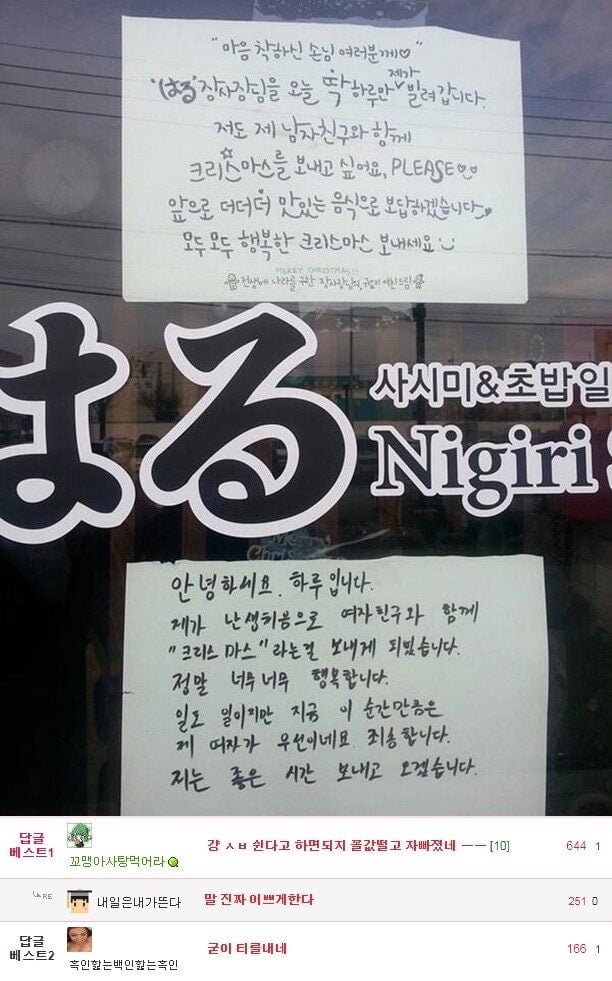 "마음 착하신 손님 여러분께♡"
'はる' 장사장님을 오늘 딱 하루만 제가 빌려 갑니다.
저도 제 남자친구와 함께
크리스마스를 보내고 싶어요, PLEASE♡♡
앞으로 더더더 맛있는 음식으로 보답하겠습니다
모두모두 행복한 크리스마스 보내세요
MERRY CHRISTMAS!!
전생에 나라를 구한 장사장님의 여친드림
はる
사시미&초밥일
Nigiri
안녕하세요. 하루입니다.
제가 난생처음으로 여자친구와 함께
"크리스마스"라는걸 보내게 되었습니다.
정말 너무너무 행복합니다.
일도 일이지만 지금 이 순간만큼은
제 여자가 우선이네요. 죄송합니다.
저는 좋은 시간 보내고 오겠습니다.
답글
베스트1
꼬맹아사탕먹어라
걍 ㅅㅂ 쉰다고 하면되지 꼴값떨고 자빠졌네 ㅡㅡ [10]
644 1
RE
내일은내가뜬다
말 진짜 이쁘게한다
251 0
답글
베스트2
흑인핥는백인핥는흑인
굳이 티를내네
166 1